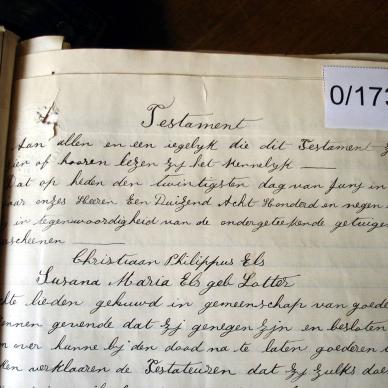 0/173
Testament
Aan allen en een iegelyk die dit Testament
zien of hooren lezen zij het kennelyk
Dat op heden den twintigsten dag van Juny in
jaar onzes Heeren Een Duizend Acht Honderd en negen
in tegenwoordigheid van de ondergeteekende getuigen
Christiaan Philippus Els
Susana Maria Els geb Lotter
lieden gehuwd in gemeenschap van goede
gevende dat zij genegen zijn en besloten
over hunne bij den dood na te laten goederen
verklaaren de Testateuren dat zij zulks doen